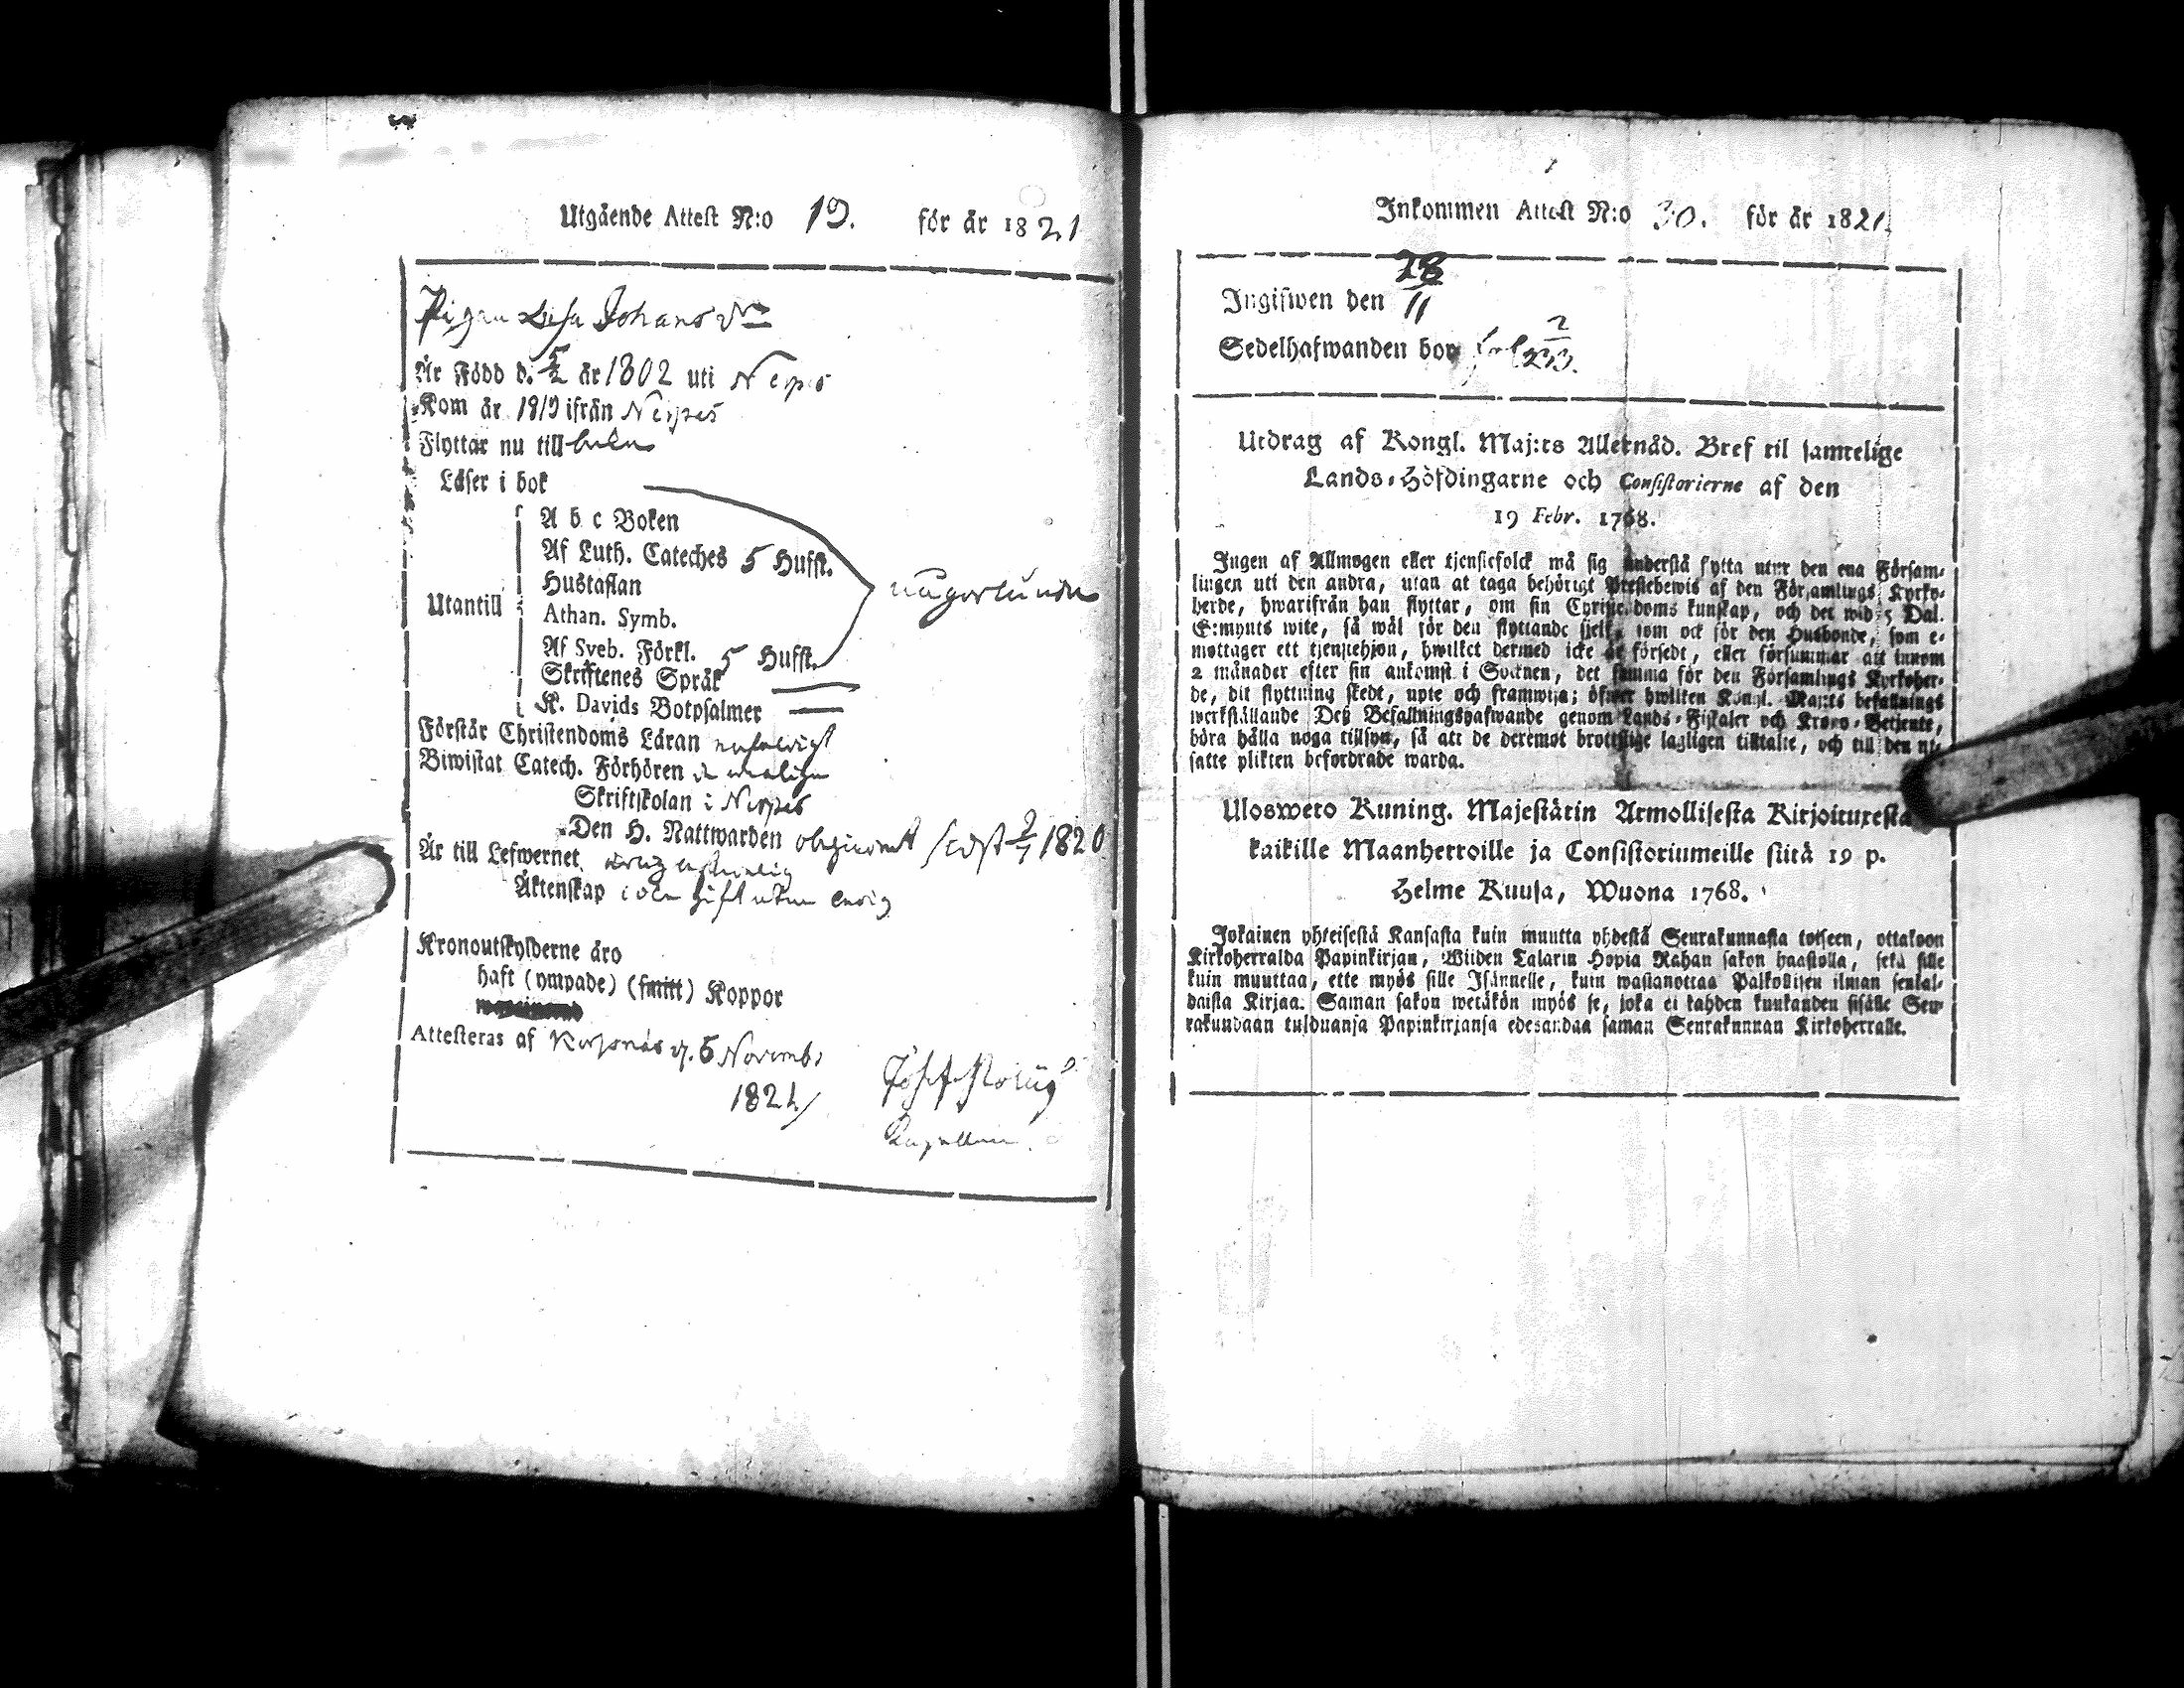 Utgående Attest N:o 19. för år 1821
Pigan Lisa Johans dr
Är Född d. 5/2 år 1802 uti Nerpes
Kom år 1819 ifrån Nerpes
Flyttar nu till
Läser i bok
A b c Boken
Af Luth. Cateches 5 Hufst.
Hustaflan
någorlunda
Utantill
Athan. Symb.
Af Sveb. Förkl. 5 Hufst.
Skriftenes Språk
K. Davids Botpsalmer
Förstår Christendoms Läran enfaldigt
Biwistat Catech. Förhören
Skriftskolan i Nerpes
Den H. Nattwarden sidst 1820
Är till Lefwernet
Äktenskap
Kronoutskylderne äro
haft (ympade) (smitt) Koppor
Attesteras af Korsnäs d. 6 Novemb.
1821
Kapellan
Inkommen Attest N:o 30. för år 1821.
Ingifwen den 28/11
Sedelhafwanden bor
Utdrag af Kongl. Maj:ts Allernåd. Bref til samtelige
Lands-Höfdingarne och Consistorierne af den
19 Febr. 1768.
Ingen af Allmogen eller tjenstefolck må sig understå flytta utur den ena Församlingen
uti den andra, utan at taga behörigt Prestebewis af den Församlings Kyrko-
herde, hwarifrån han flyttar, om sin Christendoms kunskap, och det wid 5 Dal.
S:mynts wite, så wäl för den flyttande sjelf, som ock för den Husbonde, som e-
mottager ett tjenstehjon, hwilket dermed icke är försedt, eller försummar att innom
2 månader efter sin ankomst i Socknen, det samma för den Församlings Kyrkoher-
de, dit flyttning skedt, upte och framwisa; öfwer hwilken Kongl. Maj:ts befallnings
werkställande Deß Befallningshafwande genom Lands-Fiskaler och Krono-Betjente,
böra hålla noga tillsyn, så att de deremot brottslige lagligen tilltalte, och till den ut-
satte plikten befordrade warda.
Ulosweto Kuning. Majestätin Armollisesta Kirjoituxesta
kaikille Maanherroille ja Consistoriumeille siitä 19 p.
Helme Kuusa, Wuona 1768.
Jokainen yhteisestä Kansasta kuin muutta yhdestä Seurakunnasta toiseen, ottakoon
Kirkoherralda Papinkirjan, Wiiden Talarin Hopia Rahan sakon haastolla, sekä sille
kuin muuttaa, ette myös sille Isännelle, kuin wastanottaa Palkollisen ilman senkal-
daista Kirjaa. Saman sakon wetäkön myös se, joka ei kahden kuukauden sisälle Seu-
rakundaan tulduansa Papinkirjansa edesandaa saman Seurakunnan Kirkoherralle.